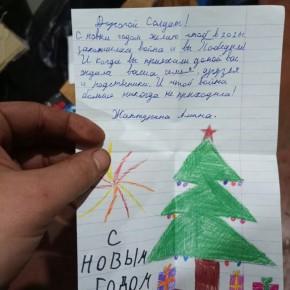 Дорогой Солдат!
С новым годом, желаю чтоб в 202
закончилась война и вы Победили!
И когда вы приехали домой вас
ждала ваша семья, друзья
и родственники. И чтоб война
больше никогда не приходила!
Алина.
С
НОВЫМ
ГОДОМ